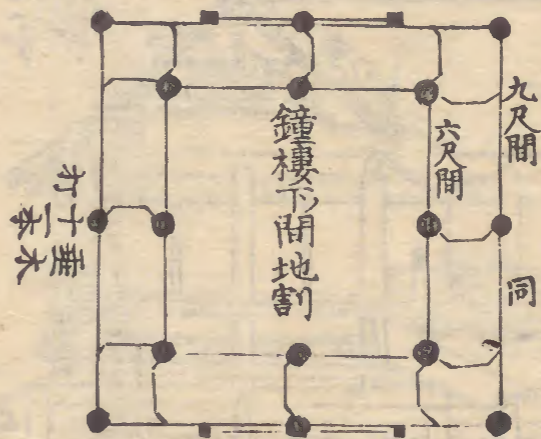 九尺間
同
六尺間
鐘樓下ノ間地割
垂木
十二本
打